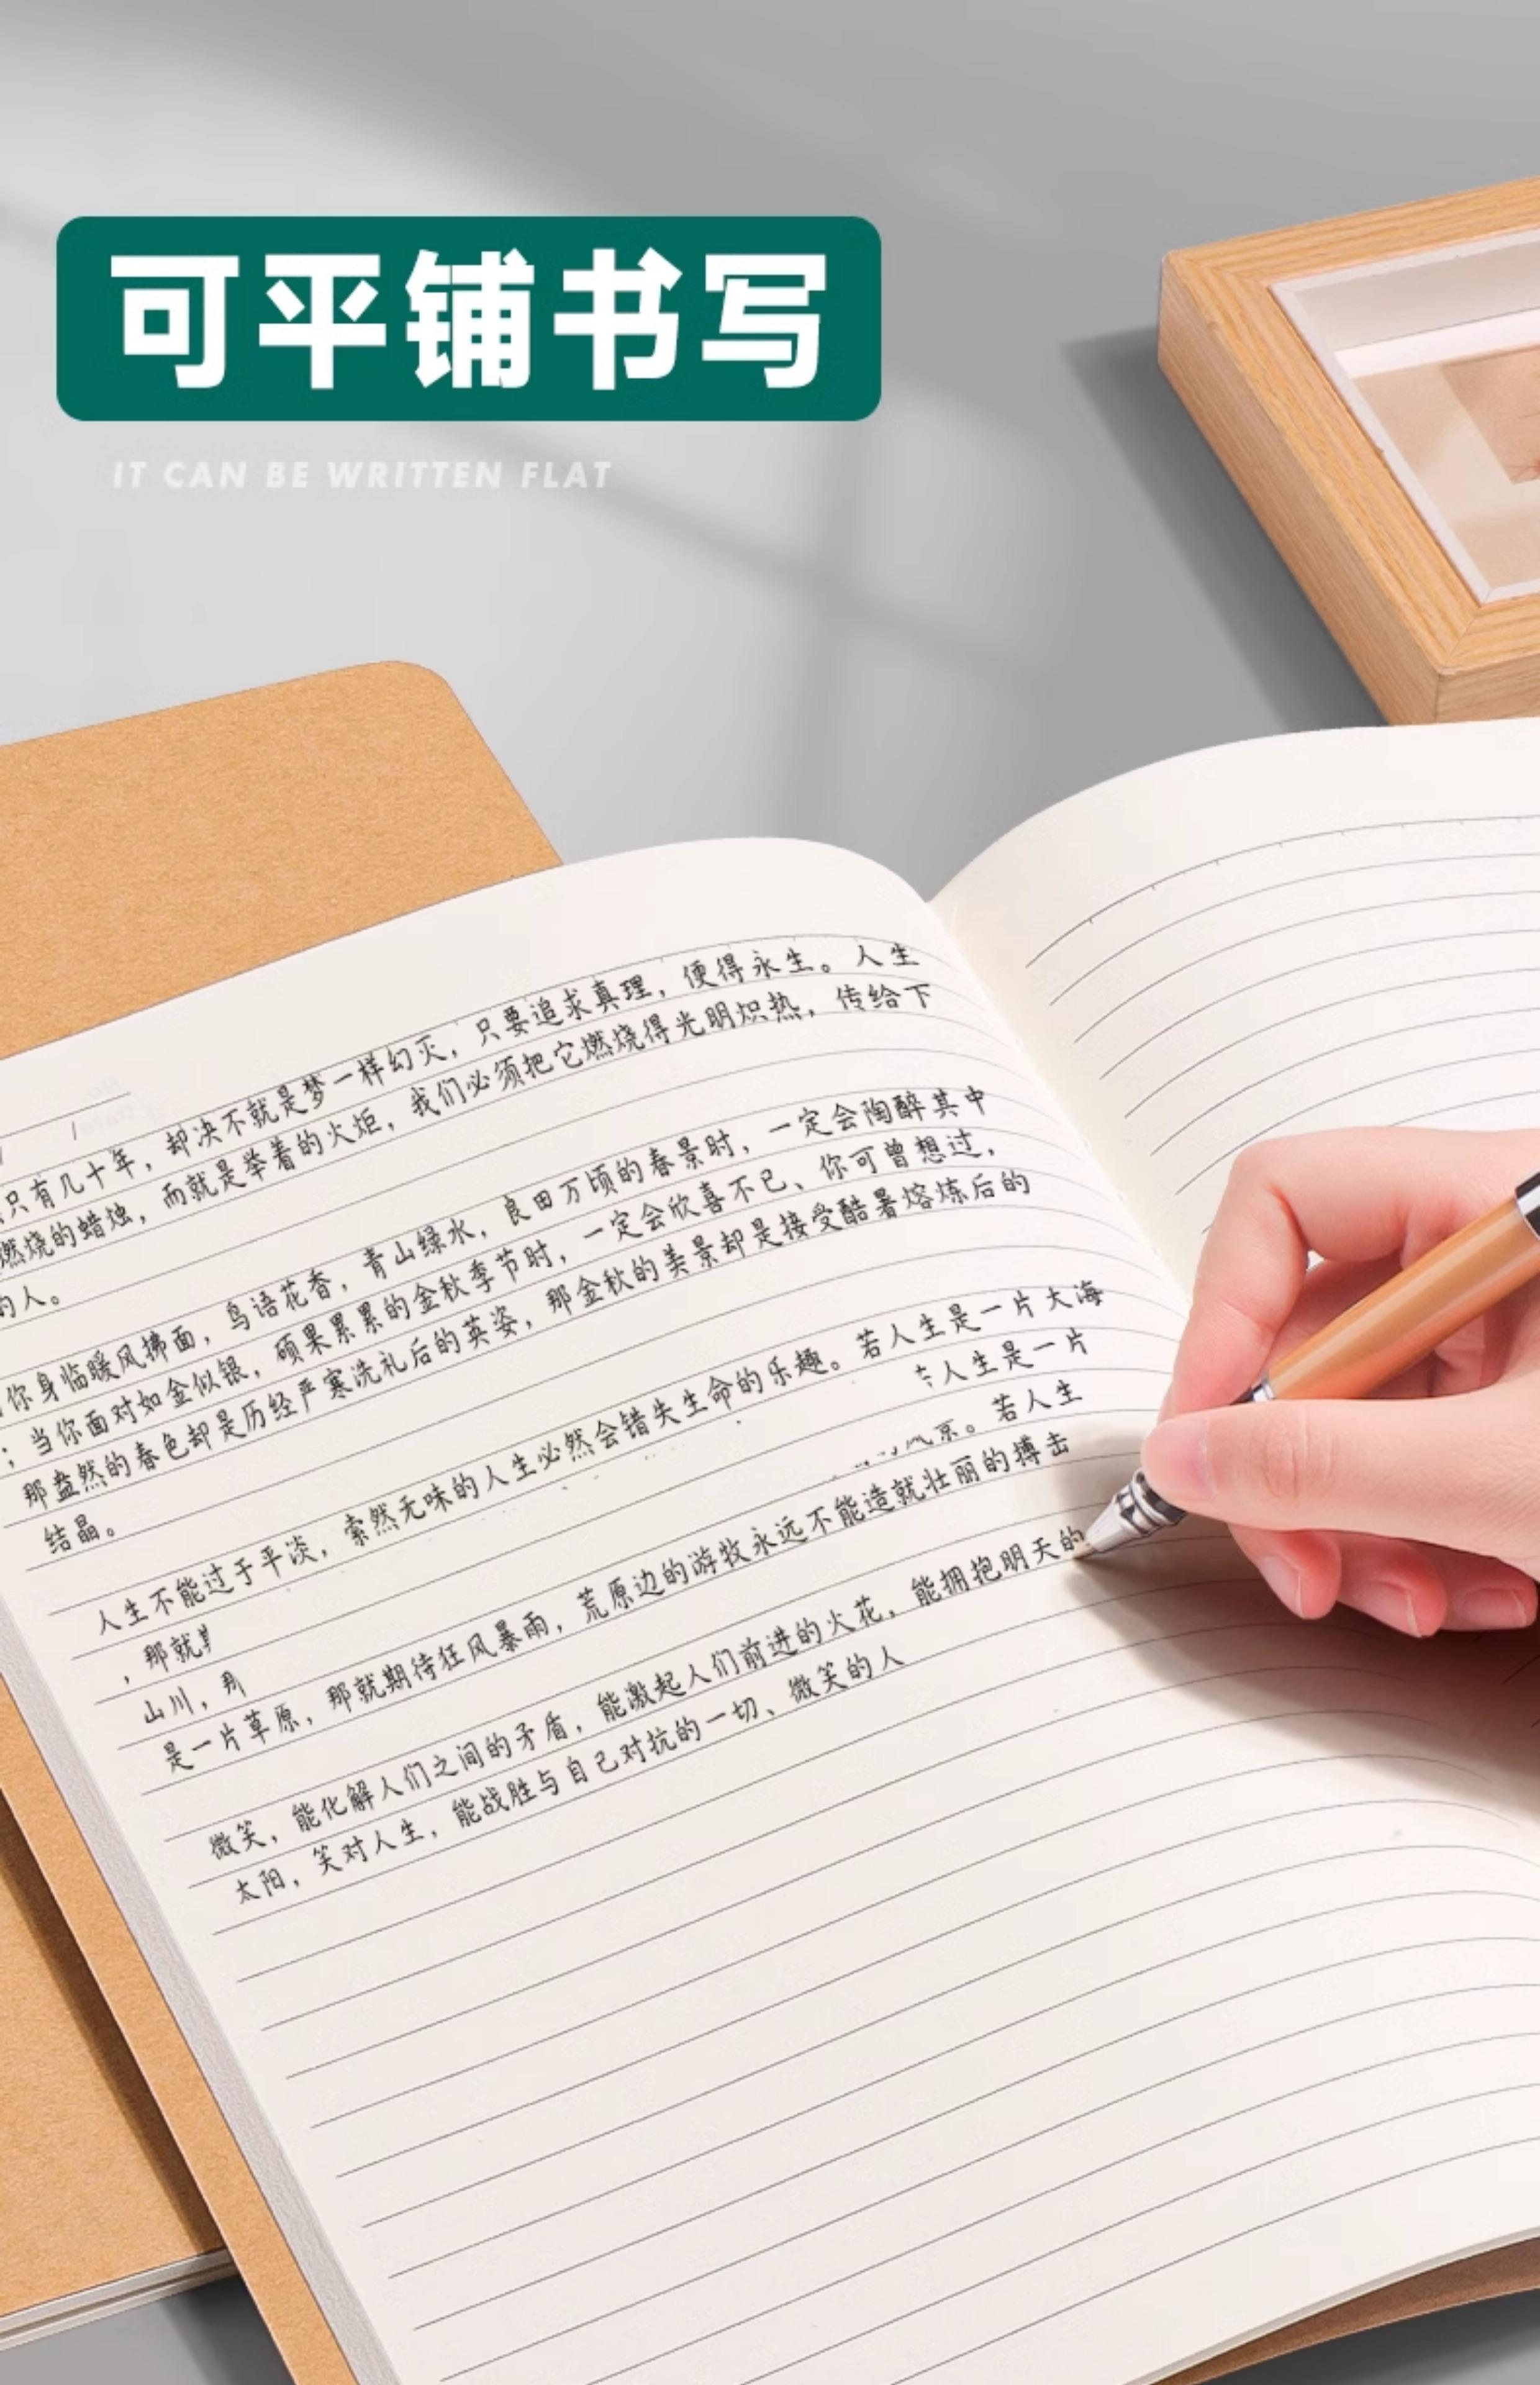 可平铺书写
IT CAN BE WRITTEN FLAT
只有几十年，却决不就是梦一样幻灭，只要追求真理，便得永生。人生
燃烧的蜡烛，而就是举着的火炬，我们必须把它燃烧得光明炽热，传给下
的人。
你身临暖风拂面，鸟语花香，青山绿水，良田万顷的春景时，一定会陶醉其中
；当你面对如金似银，硕果累累的金秋季节时，一定会欣喜不已、你可曾想过，
那盎然的春色却是历经严寒洗礼后的英姿，那金秋的美景却是接受酷暑熔炼后的
结晶。
人生不能过于平淡，索然无味的人生必然会错失生命的乐趣。若人生是一片大海
，那就 人生是一片
山川， 。若人生
是一片草原，那就期待狂风暴雨，荒原边的游牧永远不能造就壮丽的搏击
微笑，能化解人们之间的矛盾，能激起人们前进的火花，能拥抱明天的
太阳，笑对人生，能战胜与自己对抗的一切、微笑的人